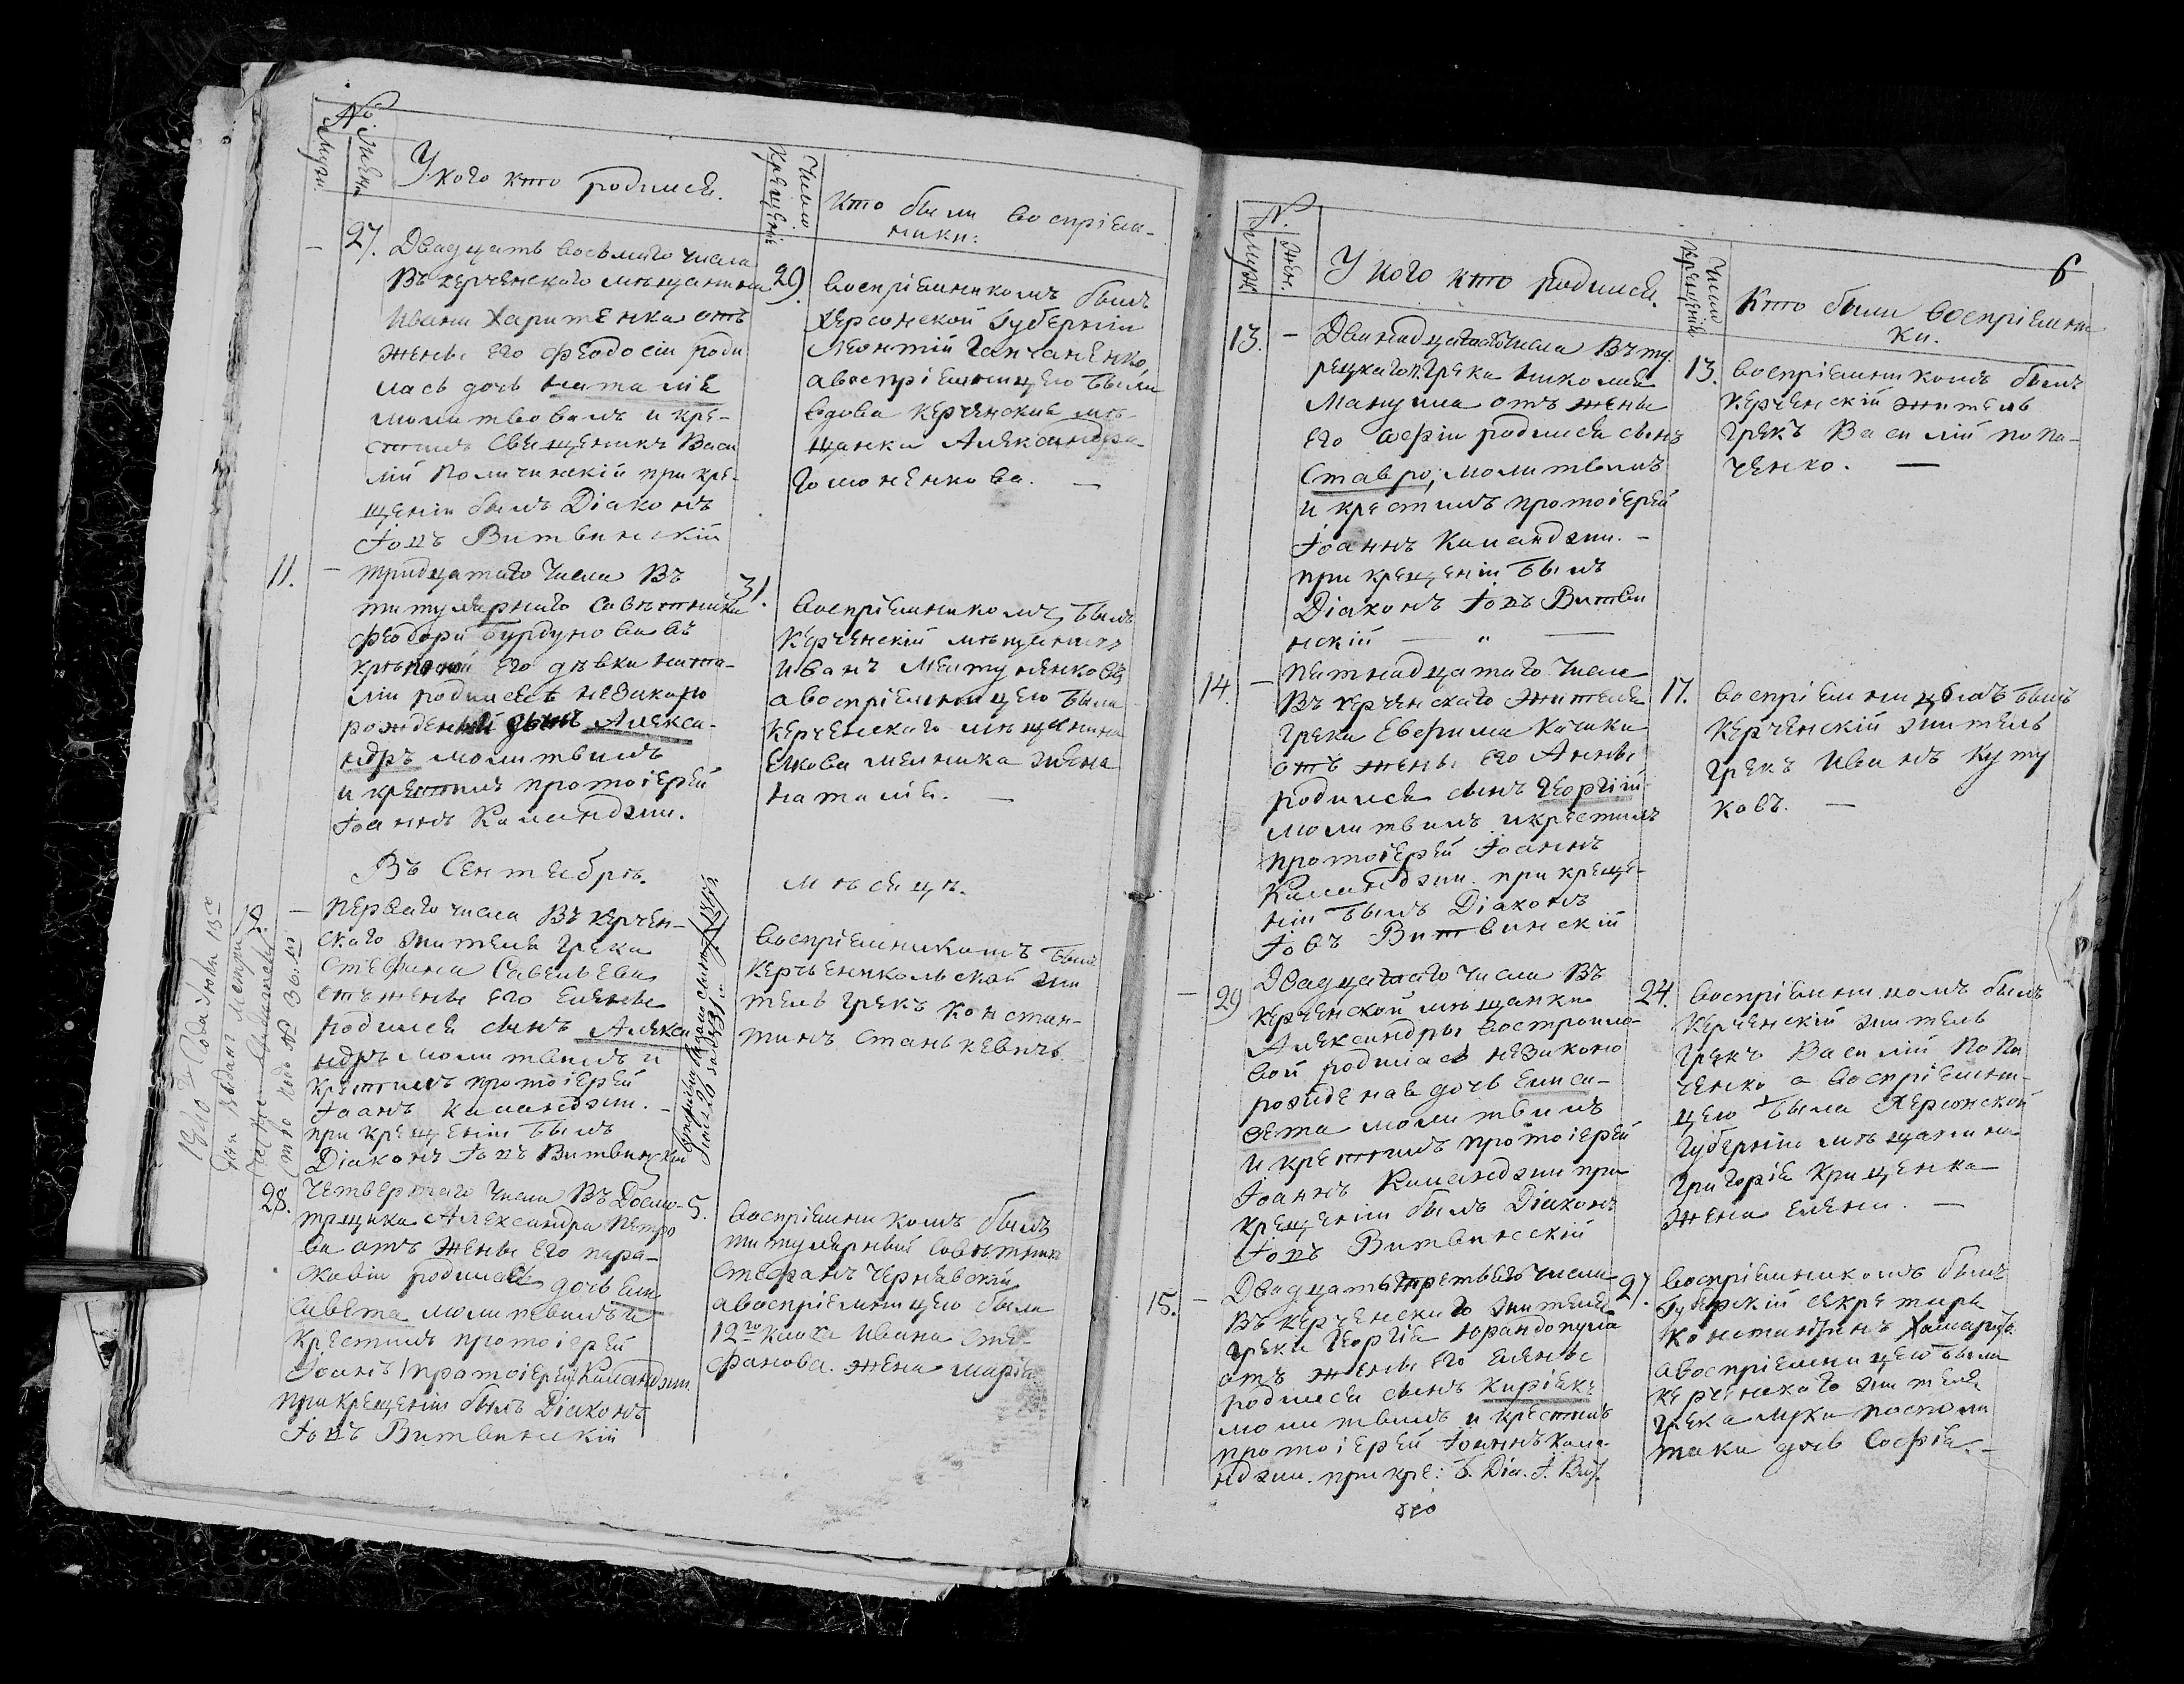 №.
Муж.
Жен.
У кого кто родился.
Число
Крещенія
Кто были воспріем-
ники:
27. Двадцать восьмаго числа
Въ керченскаго мѣщанина
Ивана Харитенка отъ
жены его Феодосіи роди
лась дочь Наталія
молитвовалъ и кре-
стилъ Священикъ Васи
лій Поличинскій при кре-
щеніи былъ Діаконъ
Іовъ Витвинскій
29. Воспріемникомъ былъ
Херсонской губерніи
Леонтій Ганчаненко,
а воспріемницею была
вдова керченская мѣ-
щанка Александра
Гомоненкова. —
11. — тридцатаго числа Въ
титулярнаго Савѣтника
Феодора Бурдунова въ
крѣпосной его дѣвки Ната-
ліи родился незаконо
рожденный сынъ Алекса-
ндръ молитвилъ
и крестилъ протоіерей
Іоаннъ Каландзи.
31. Воспріемникомъ былъ
Керченскій мѣщанинъ
Иванъ
а воспріемницею была
Керченскаго мѣщанина
Якова мелника жена
Наталія. —
Въ Сентебрѣ.
мѣсецѣ.
— первого числа Въ керчен-
скаго жителя грека
Стефана Савельева
отъ жены его Елены
родился сынъ Алекса
ндръ молитвилъ и
крестилъ протоіерей
Іоанъ Каландзи. —
при крещеніи былъ
Діаконъ Іовъ Витвинскій
Воспріемникомъ былъ
Керчьеникольской жи
тель грекъ Констан-
тинъ Станькевичъ
28. Четвертаго числа Въ Досмо-
трщика Александра Петро
ва отъ жены его пара-
скавіи родилась дочь Ели
савета молитвилъ и
крестилъ протоіерей
Іоанъ протоіерей Каландзи.
при крещеніи былъ Діаконъ
Іовъ Витвинскій
5. Воспріемникомъ былъ
титулярный Совѣтник
Стефанъ Чернявскій
а воспріемницею была
12го класа Ивана Сте-
фанова. жена Марія
6
№.
Муж
Жен.
У кого кто родился.
Число
крещенія
Кто были воспріемни
ки.
13. — Двинадцатаго числа Въ ту
рецкаго п. Грека Николая
Мануила отъ жены
его Софіи родился сынъ
Ставро, молитвилъ
и крестилъ протоіерей
Іоаннъ Каландзи. —
при крещеніи былъ
Діаконъ Іовъ Витви
нскій — " —
13. Воспріемникомъ былъ
Керченскій житель
грекъ Василій Попа-
ченко. —
14. — Пятнадцатаго числа
Въ керченскаго жителя
грека Евфима Качика
отъ жены его Анны
родился сынъ Георгій
молитвилъ и крестилъ
протоіерей Іоаннъ
Каландзи. при креще-
ніи былъ Діаконъ
Іовъ Витвинскій
17. Воспріемникомъ былъ
Керченскій житель
грекъ Иванъ Куту
ковъ. —
— 29 Двадцатаго числа Въ
Керченской мѣщанки
Александры Востропло-
вой родилась незаконо
рожденая дочь Елиса-
вета молитвилъ
и крестилъ протоіерей
Іоаннъ Каландзи при
крещеніи былъ Діаконъ
Іовъ Витвинскій
24. Воспріемникомъ былъ
Керченскій житель
грекъ Василій Попа
ченко а воспріемни-
цею была Херсонской
Губерніи мѣщанина
Григорія Крищенка
жена Елена. —
15. — Двадцать третьяго числа
Въ керченскаго жителя
грека Георгія Юрандопула
отъ жены его Елены
родился сынъ Киріякъ
молитвилъ и крестилъ
протоіерей Іоаннъ Кала-
ндзи. при кре: б. Діа. І. Вит.
27. Воспріемникомъ былъ
Губерскій секретарь
Константинъ
а воспріемницею была
керченскаго жителя
грека
дочь Софія. —